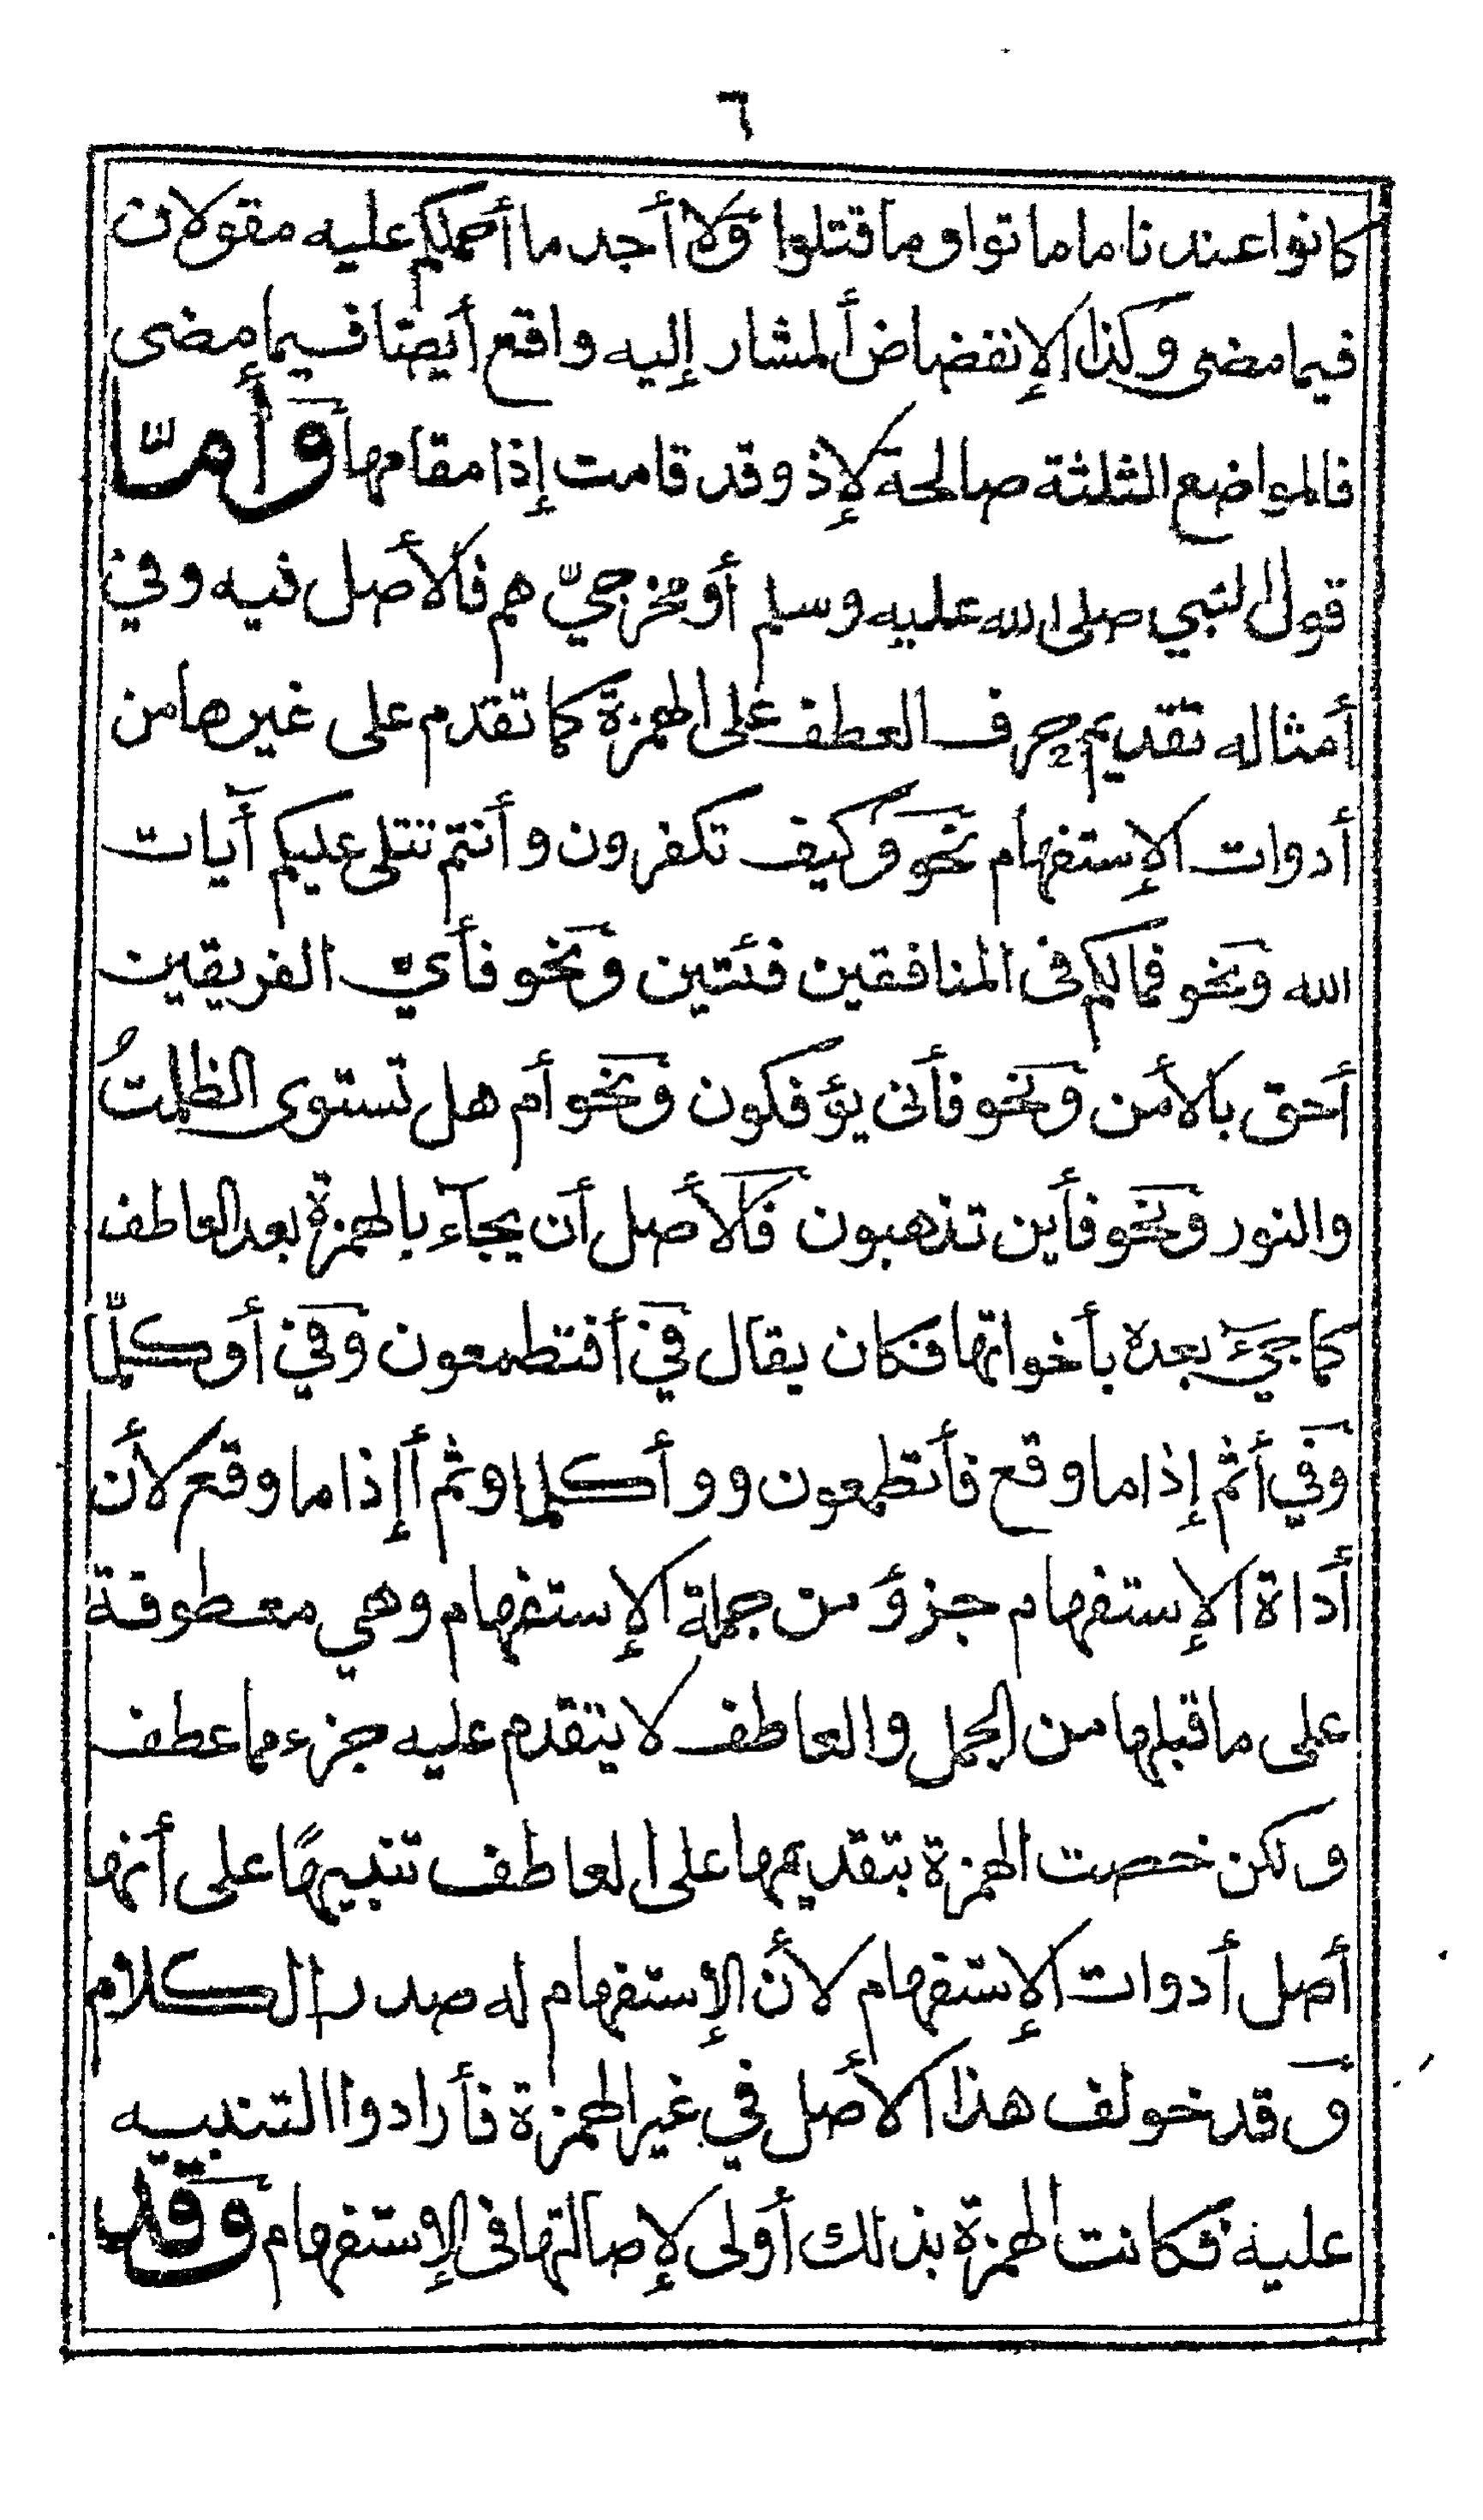 ٦
كانوا عندنا ما ماتوا وما قتلوا ولا أجد ما أحملكم عليه مقولان
فيما مضى وكذا الإنفضاض المشار إليه واقع أيضا فيما مضى
فالمواضع الثلثة صالحة لإذ وقد قامت إذا مقامها وأمّا
قول النبي صلى الله عليه وسلم أو مخرجيّ هم فالأصل فيه وفي
أمثاله تقديم حرف العطف على الهمزة كما تقدم على غيرها من
أدوات الإستفهام نحو وكيف تكفرون وأنتم تتلى عليكم أيات
الله ونحو فمالكم فى المنافقين فئتين ونحو فأي الفريقين
أحق بالأمن ونحو فأنى يؤفكون ونحو أم هل تستوى الظلمتُ
والنور ونحو فأين تذهبون فالأصل أن يجآء بالهمزة بعد العاطف
كما جيء بعده بأخواتها فكان يقال في أفتطمعون وفي أوكلّما
وفي أثم إذا ما وقع فأتطمعون ووأكلما وثم أإذا ما وقع لأن
أداة الإستفهام جزؤ من جملة الإستفهام وهي معطوفة
على ما قبلها من الجمل والعاطف لا يتقدم عليه جزء مما عطف
ولكن خصت الهمزة بتقديمها على العاطف تنبيهًا على أنها
أصل أدوات الإستفهام لأن الإستفهام له صدر الكلام
وقد خولف هذا الأصل في غير الهمزة فأرادوا التنبيه
عليه فكانت الهمزة بذلك أولى لإصالتها فى الإستفهام وقد